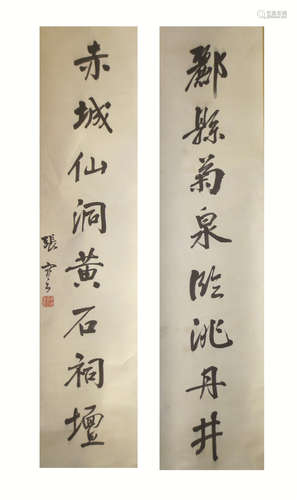 酈縣菊泉臨洮丹井
赤城仙洞黃石祠壇
張